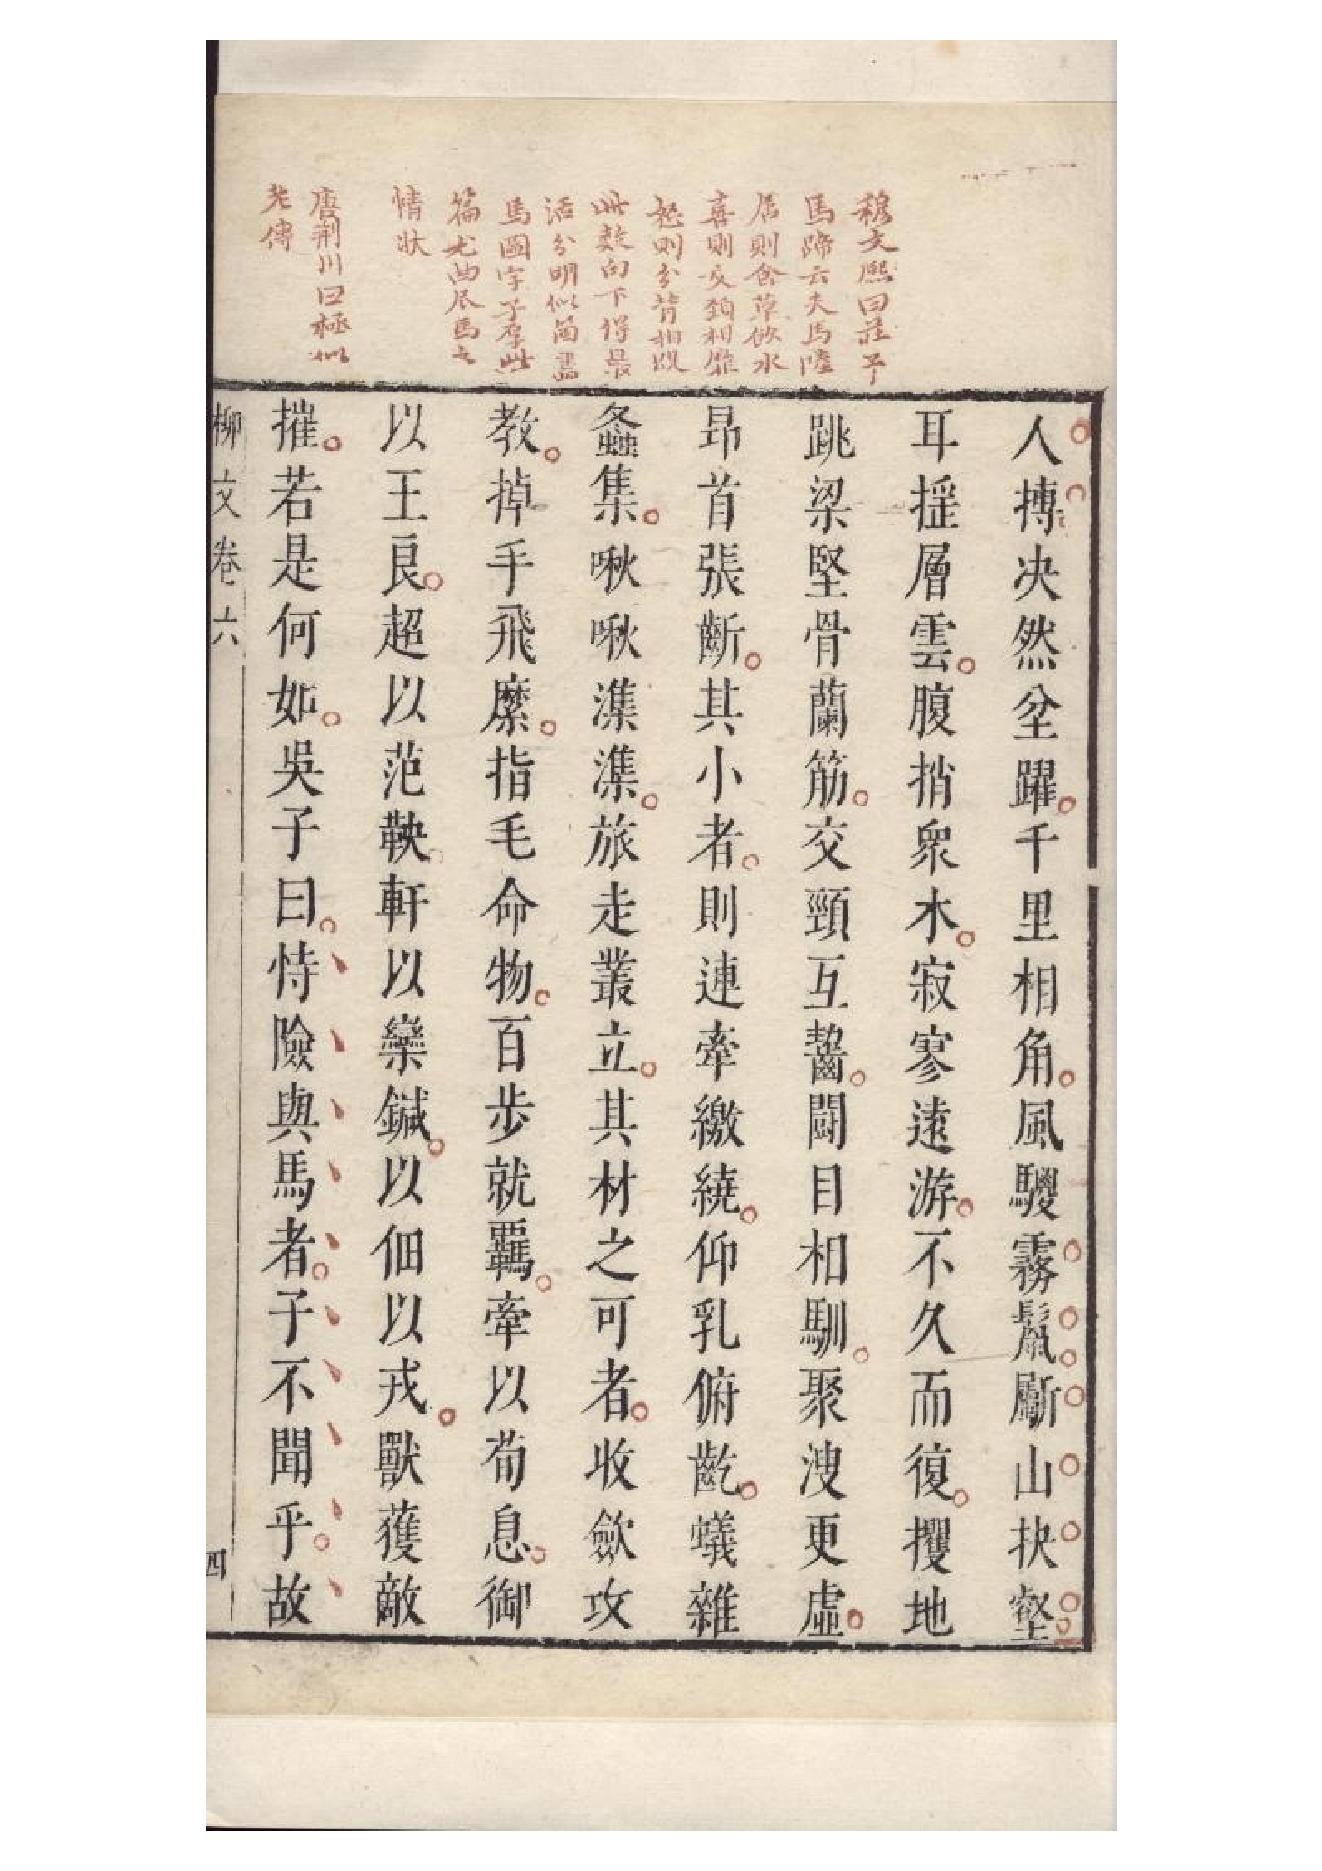 穆文熙曰莊子
馬蹄云夫馬陸
居則食草飲水
喜則交頸相靡
怒則分背相踶
此數句下得最
活分明似箇畫
馬圖字子厚此
篇尤曲尽馬之
情狀
唐荊川曰極似
老傳
人搏决然坌躍千里相角風騣霧鬛斸山抉壑
耳揺層雲腹捎衆木寂寥逺游不久而復攫地
跳梁堅骨蘭筋交頸互齧鬭目相馴聚溲更虛
昂首張齗其小者則連牽繳繞仰乳俯齕蟻雜
螽集啾啾潗潗旅走叢立其材之可者收歛攻
教掉手飛縻指毛命物百歩就羈牽以荀息御
以王良超以范鞅軒以欒鍼以佃以戎獸獲敵
摧若是何如吳子曰恃險與馬者子不聞乎故
柳文卷六 四